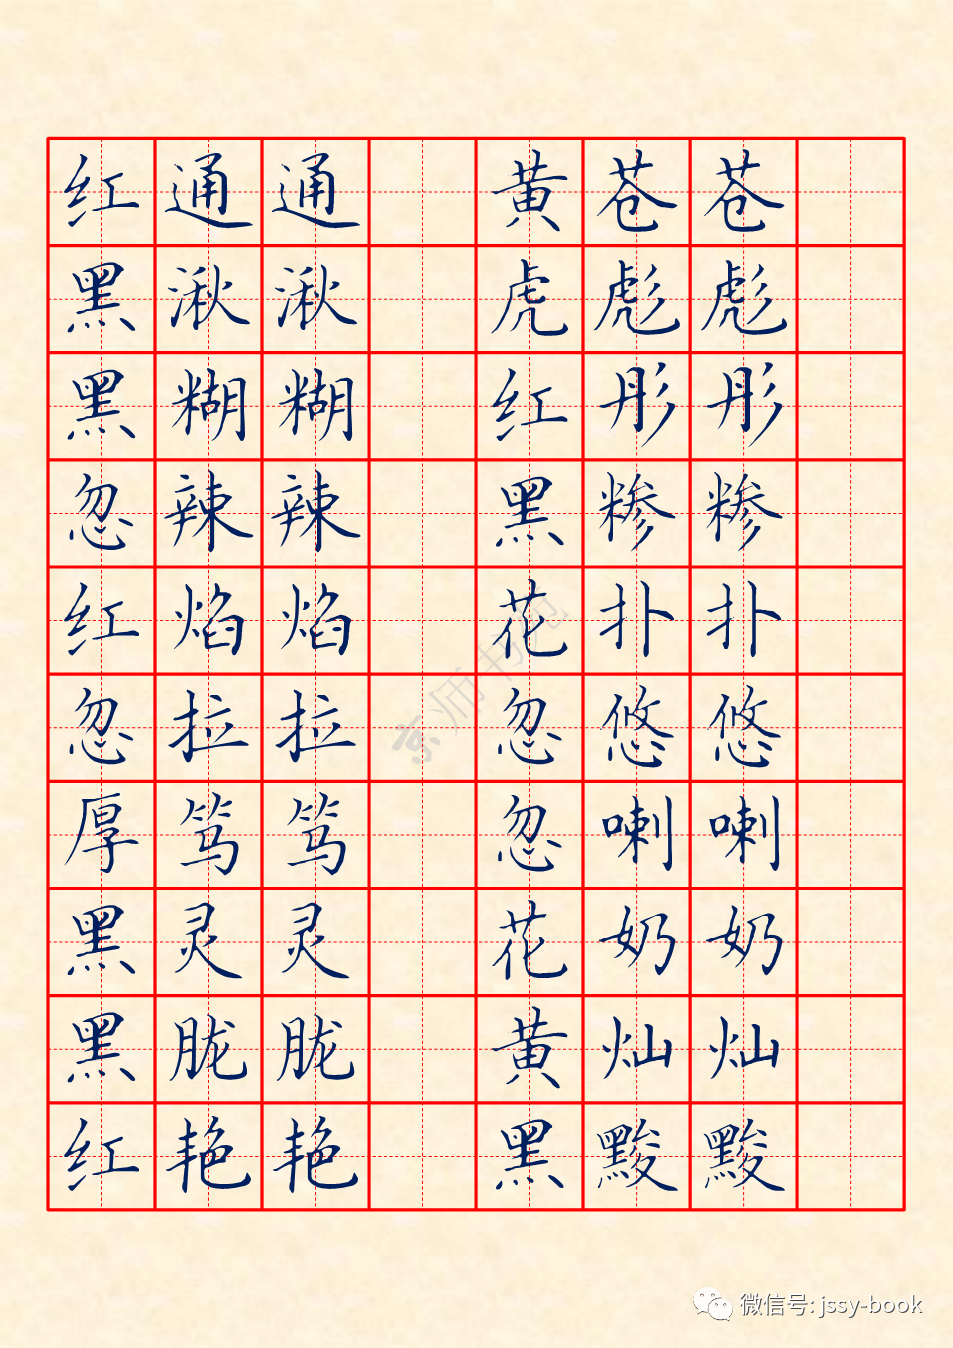 红通通 黄苍苍
黑湫湫 虎彪彪
黑糊糊 红彤彤
忽辣辣 黑糁糁
红焰焰 花扑扑
忽拉拉 忽悠悠
厚笃笃 忽喇喇
黑灵灵 花奶奶
黑胧胧 黄灿灿
红艳艳 黑黢黢
京师书苑
微信号: jssy-book